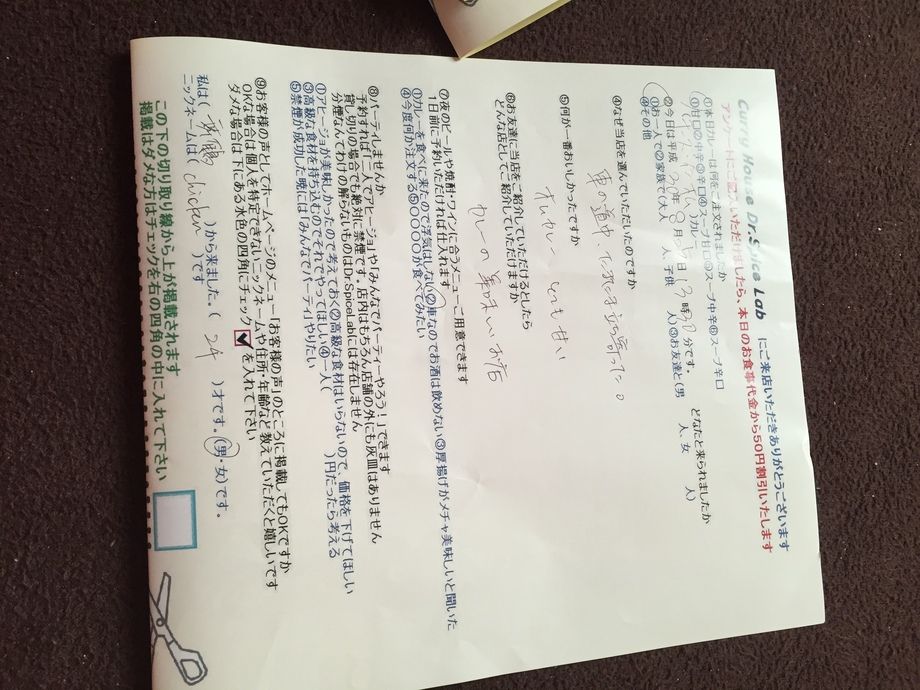 Curry House Dr.Spice Lab にご来店いただきありがとうございます
アンケートにご記入いただけましたら、本日のお食事代金から50円割引いたします
①本日カレーは何をご注文されましたか
①甘口②中辛③辛口④スープ甘口⑤スープ中辛⑥スープ辛口
)カレー
②今日は平成 30年 8月 日 13時 分です。 どなたと来られましたか
①お一人で②家族で(大人 人、子供 人)③お友達と(男 人、女 人)
④その他
④なぜ当店を選んでいただいたのですか
車の道中で
⑤何が一番おいしかったですか
カレー とても甘い
⑥お友達に当店をご紹介していただけるとしたら
どんな店としてご紹介していただけますか
カレーの美味しいお店
⑦夜のビールや焼酎・ワインに合うメニューご用意できます
1日前にご予約いただければ仕入れます
①カレーを食べに来たので浮気はしない②車なのでお酒は飲めない③厚揚げがメチャ美味しいと聞いた
④今度何か注文する⑤〇〇〇〇が食べてみたい
⑧パーティしませんか
予約すれば「二人でアヒージョ」や「みんなでパーティーやろう!」できます
貸し切りの場合でも絶対に禁煙です。店内はもちろん店舗の外にも灰皿はありません
分煙なんてわけの解らないものはDr.SpiceLabには存在しません
①アヒージョが美味しかったので考えておく②高級な食材はいらないので、価格を下げてほしい
③高級な食材を持ち込むのでそれでやってほしい④一人( )円だったら考える
⑤禁煙が成功した暁には「みんなでパーティ」やりたい
⑨お客様の声としてホームページのメニュー「お客様の声」のところに掲載してもOKですか
OKな場合は個人を特定できないニックネームや住所・年齢など教えていただくと嬉しいです
ダメな場合は下にある水色の四角にチェック☑を入れて下さい
私は( )から来ました。( 24 )才です。(男・女)です。
ニックネームは( chicken )
この下の切り取り線から上が掲載されます
掲載はダメな方はチェックを右の四角の中に入れて下さい